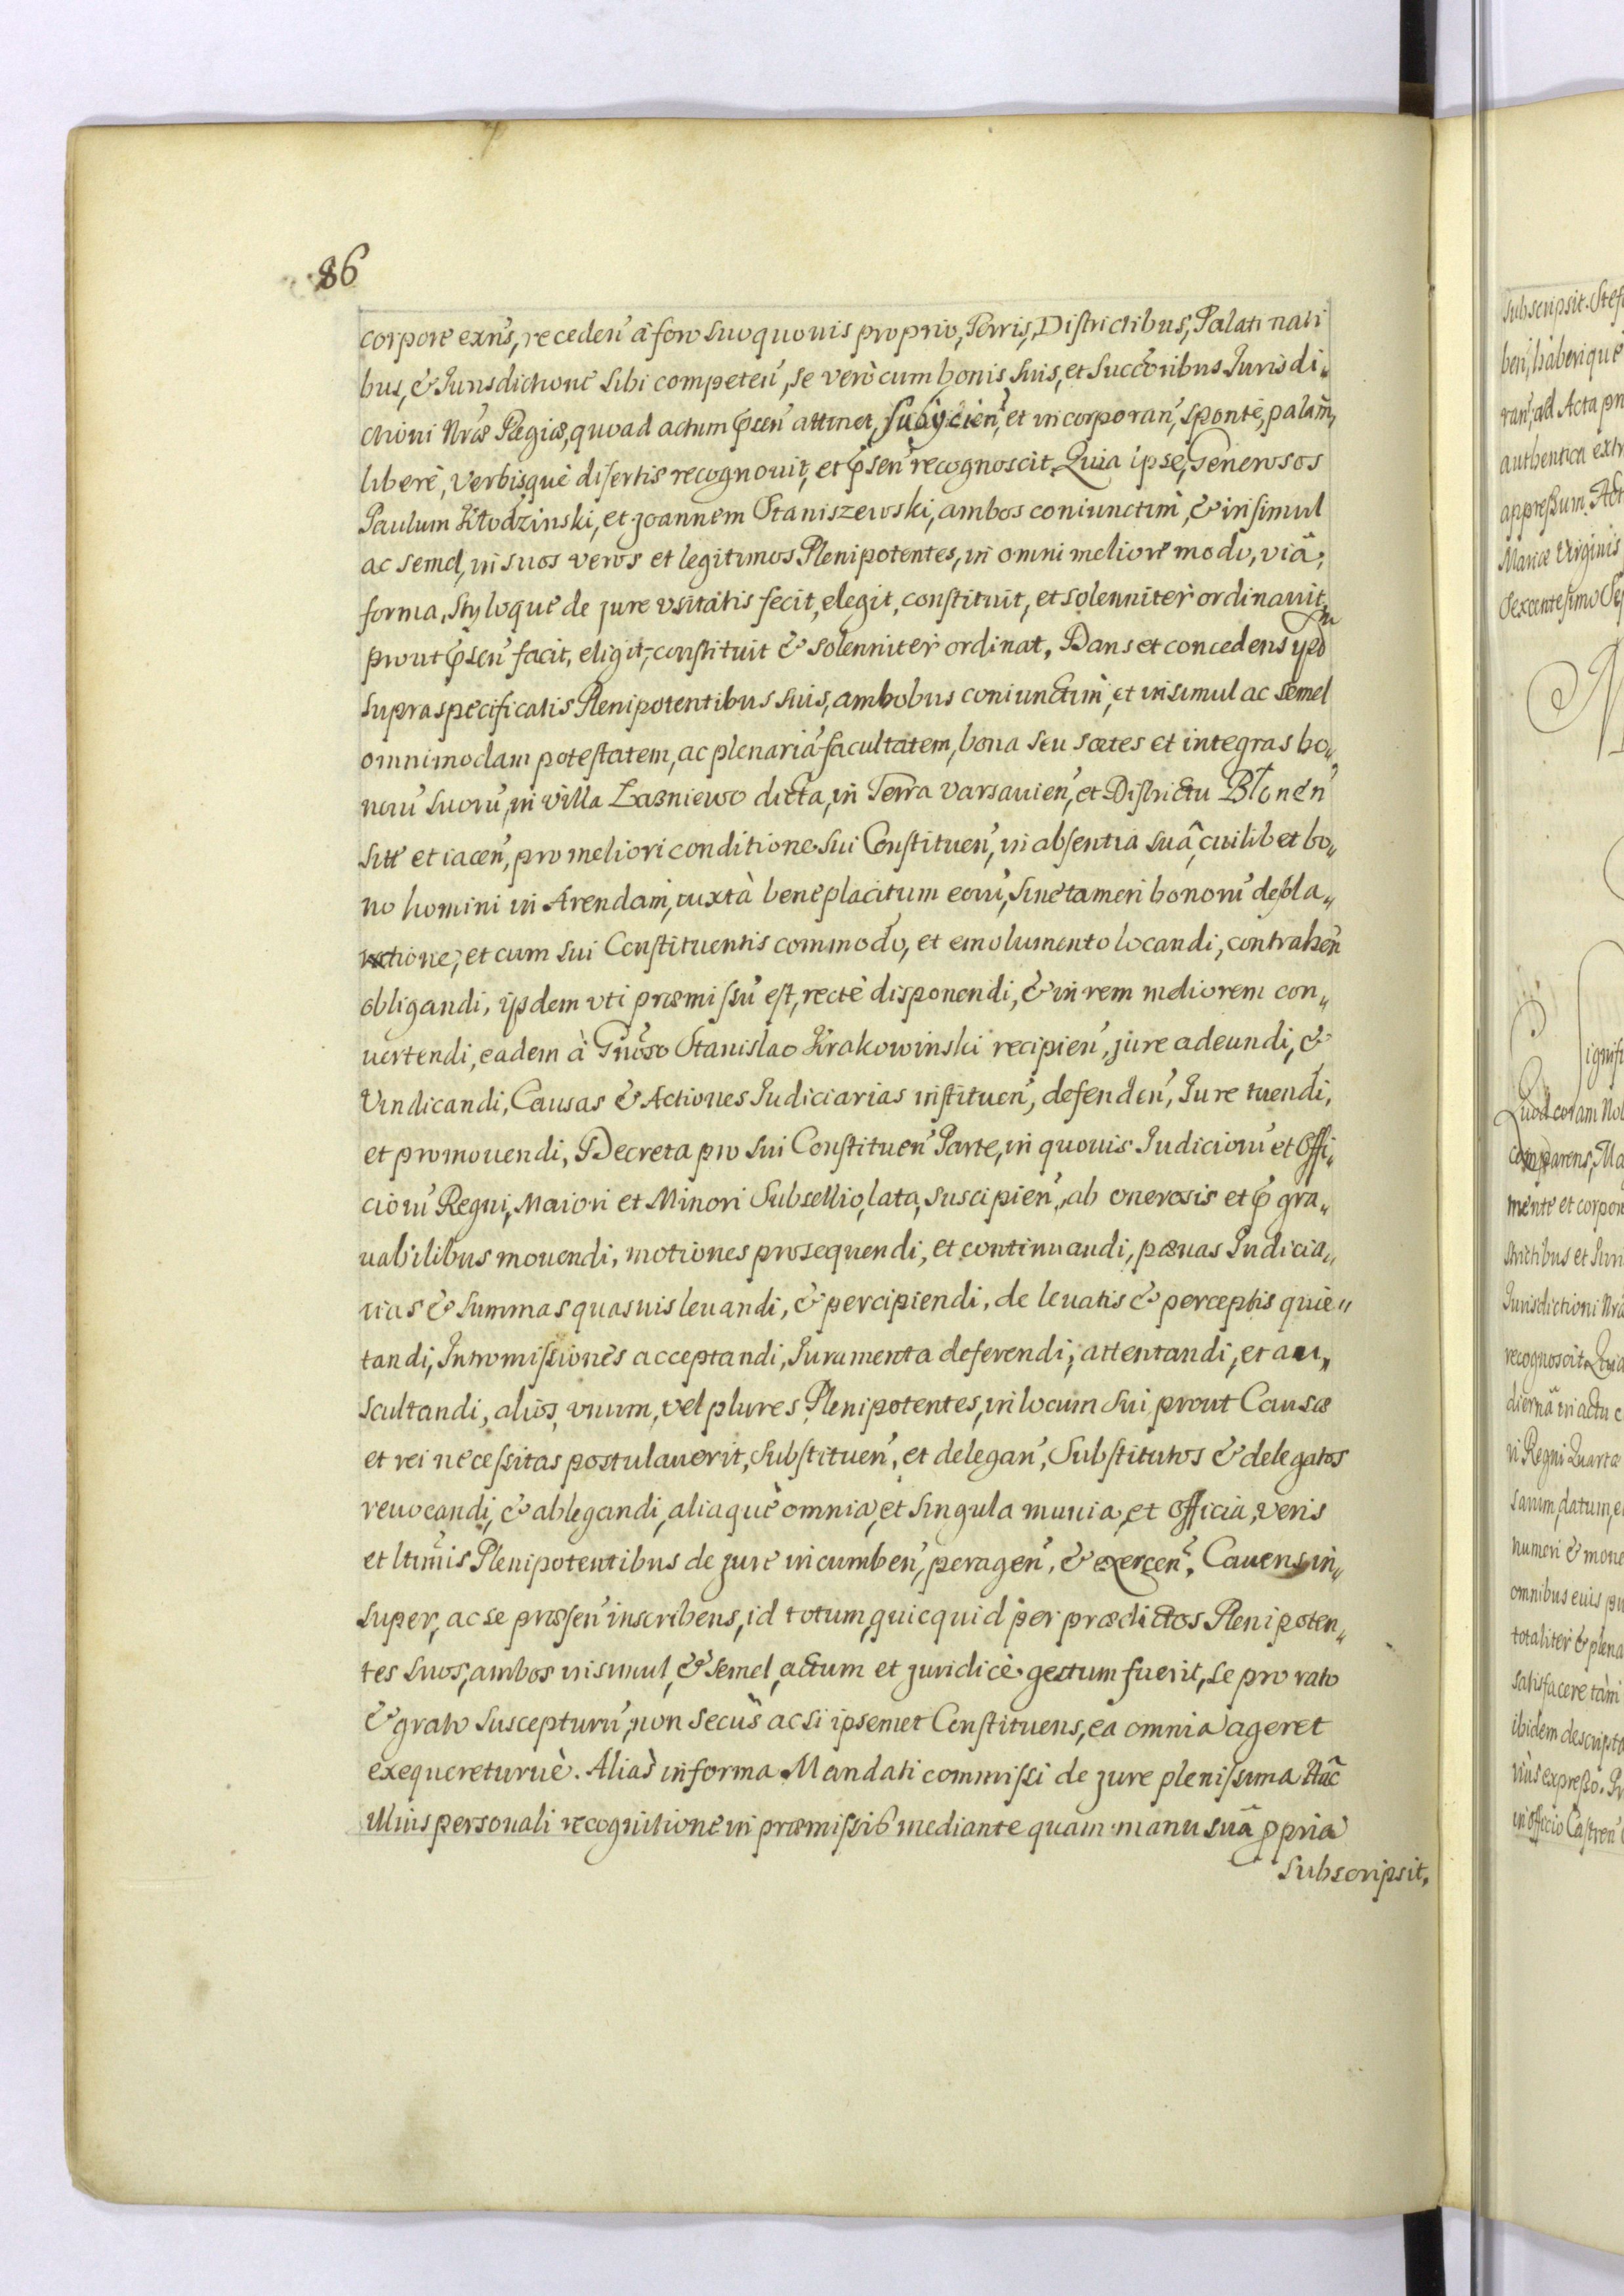 86
corpore exñs, receden̄ à foro suo quovis proprio, Terris, Districtibus, Palatinati
bus, & Jurisdictione sibi competen̄, se verò cum bonis suis, et succõribus Jurisdi„
ctioni Nrãe Regiæ, quoad actum p̄sen̄ attinet, subÿcien̄, et incorporan̄, spontè, palàm,
liberè, verbisquè disertis recognovit, et p̄sen̄ recognoscit, Quia ipse, Generosos
Paulum Kłodzinski, et Joannem Staniszewski, ambos coniunctim, & insimul
ac semel, in suos veros et legitimos Plenipotentes, in omni meliore modo, viâ,
forma, Styloquè de jure usitatis fecit, elegit, constituit, et solenniter ordinavit,
prout p̄sen̄ facit, eligit, constituit & solenniter ordinat, Dans et concedens ÿsd
supraspecificatis Plenipotentibus suis, ambobus coniunctim, et insimul ac semel
omnimodam potestatem, ac plenariā facultatem, bona seu sortes et integras bo„
norū suorū, in villa Łaźniewo dicta, in Terra Varsavien̄, et Districtu Błonen̄
sitt et iacen̄, pro meliori conditione sui Constituen̄, in absentia suâ, cuilibet bo„
no homini in Arendam, iuxtà beneplacitum eorū, sine tamen bonorū desola„
tione, et cum sui Constituentis commodo, et emolumento locandi, contrahen̄
obligandi, ijsdem uti præmissū est, rectè disponendi, & in rem meliorem con„
vertendi, eadem à Gnõso Stanislao Krakowinski recipien̄, jure adeundi, &
Vindicandi, Causas & Actiones Judiciarias instituen̄, defenden̄, Jure tuendi,
et promovendi, Decreta pro sui Constituen̄ Parte, in quovis Judiciorū et Offi„
ciorū Regni, Maiori et Minori Subsellio, lata, suscipien̄, ab onerosis et p̄ gra„
vabilibus movendi, motiones prosequendi, et continuandi, pænas Judicia„
rias & summas quasvis levandi, & percipiendi, de levatis & perceptis quie„
tandi, Intromissiones acceptandi, Juramenta deferendi, attentandi, et au„
scultandi, alios, unum, vel plures Plenipotentes, in locum sui prout Causæ
et rei necessitas postulaverit, substituen̄, et delegan̄, Substitutos & delegatos
revocandi, & ablegandi, aliaquè omnia, et singula munia, et officia, veris
et ltimis Plenipotentibus de jure incumben̄, peragen̄, & exercen̄. Cavens in„
super, ac se præsen̄ inscribens, id totum, quicquid per prædictos Plenipoten„
tes suos, ambos insimul, & semel, actum et juridicè gestum fuerit, se pro rato
& grato suscepturū, non secùs ac si ipsemet Constituens, ea omnia ageret
exequereturuè. Aliàs in forma Mandati commissi de jure plenissima Hac
illius personali recognitione in præmissis mediante quam manu suâ ppria
subscripsit,